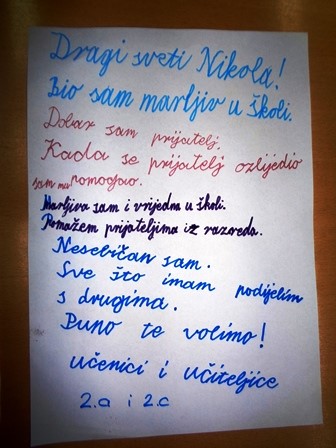 Dragi sveti Nikola!
Bio sam marljiv u školi.
Dobar sam prijatelj.
Kada se prijatelj ozlijedio
sam mu pomogao.
Marljiva sam i vrijedna u školi.
Pomažem prijateljima iz razreda.
Nesebičan sam.
Sve što imam podijelim
s drugima.
Puno te volimo!
učenici i učiteljice
2.a i 2.c